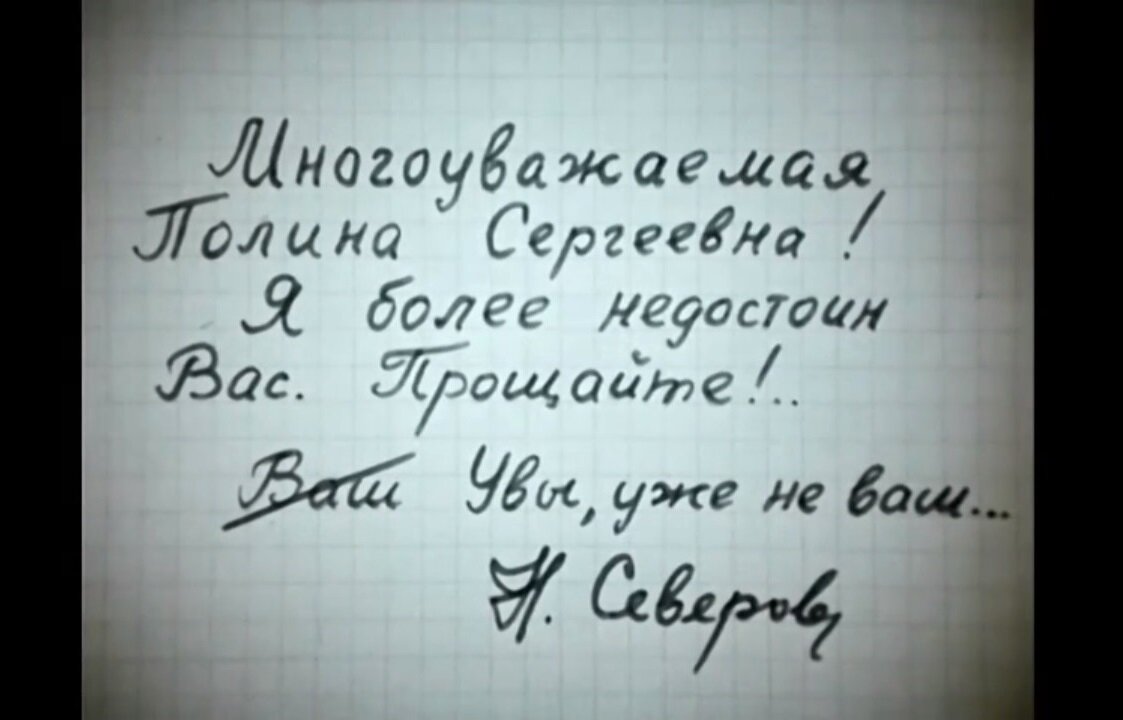 Многоуважаемая,
Полина Сергеевна!
Я более недостоин
Вас. Прощайте!..
Ваш Увы, уже не ваш...
Н. Северов